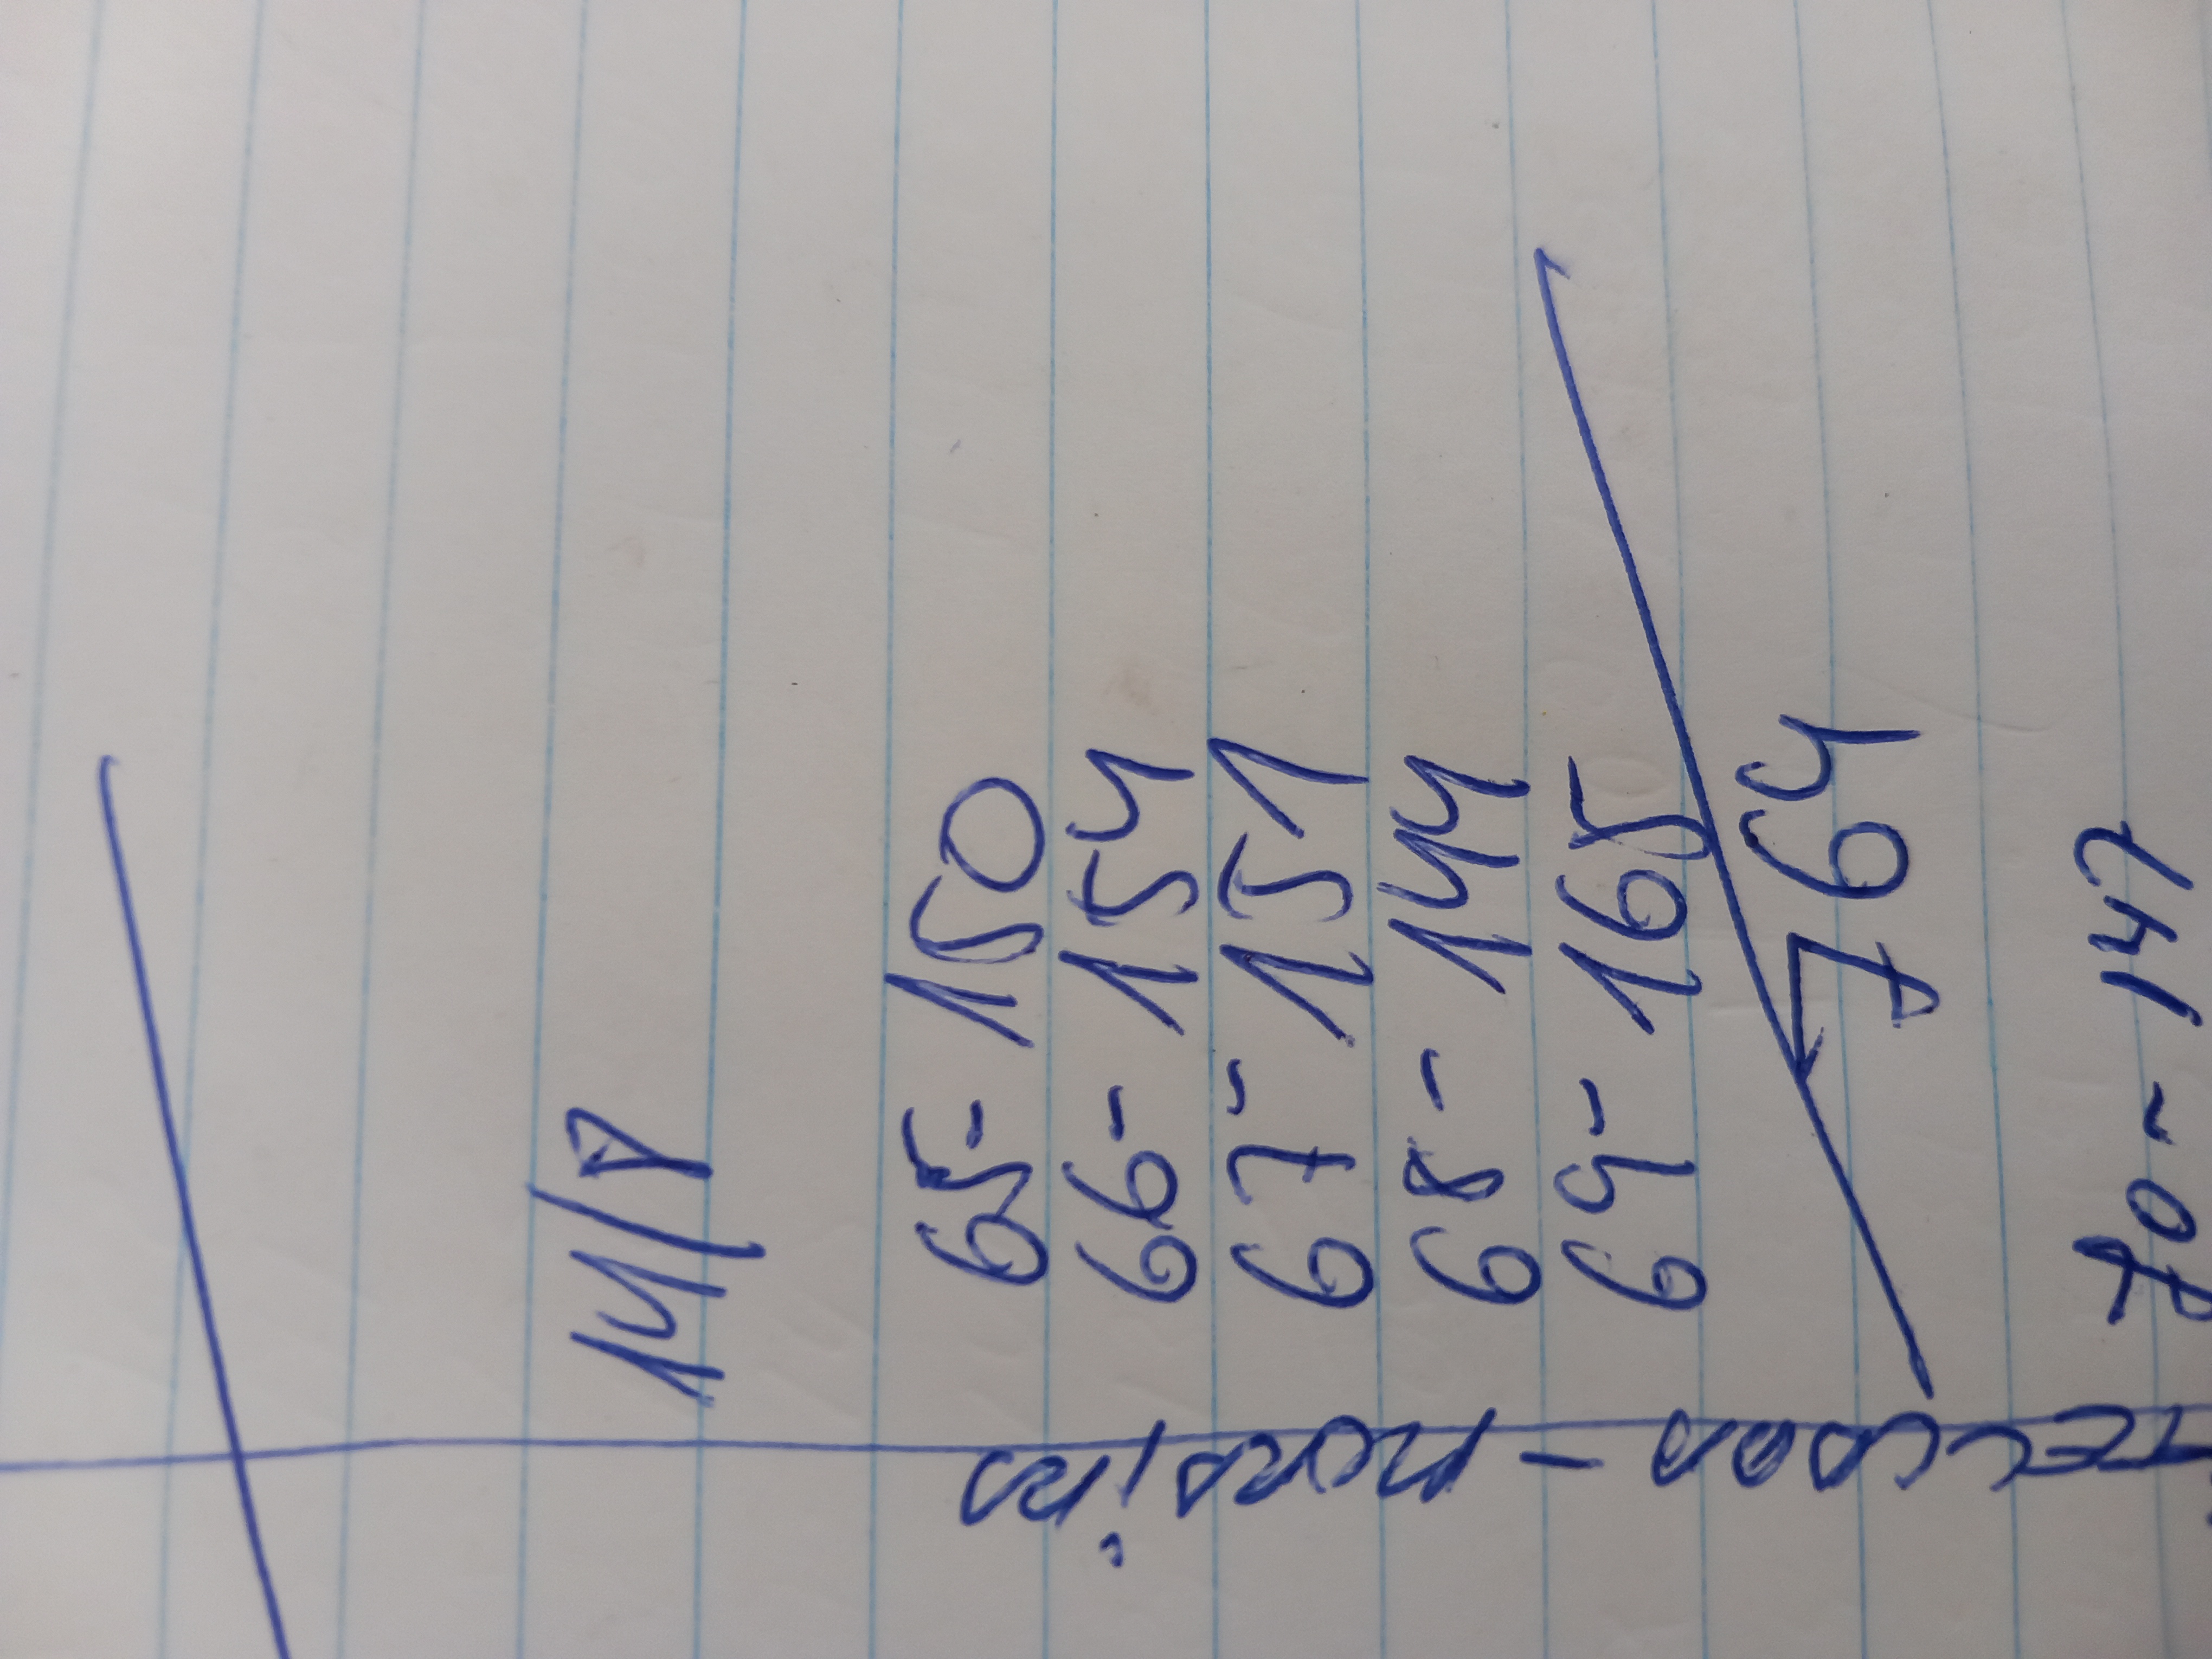 14/8
65- 150
66- 154
67- 151
68- 144
69- 165
764
70 - 142